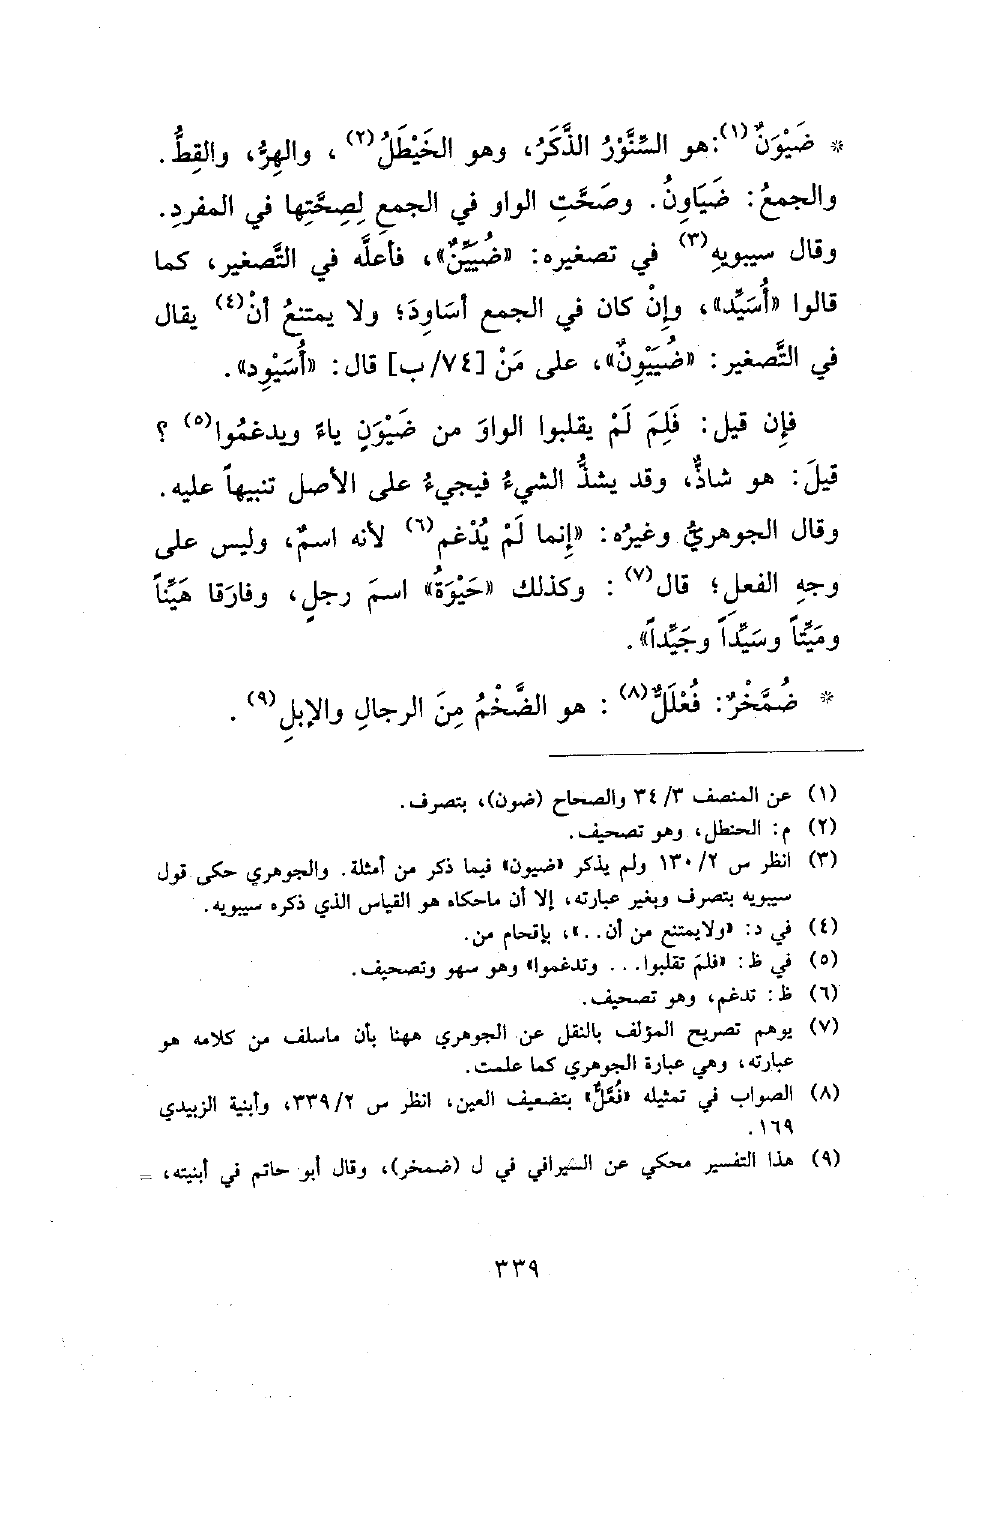 * ضَيْوَنٌ(١): هو السِّنَّوْرُ الذَّكَرُ، وهو الخَيْطَلُ(٢)، والهِرُّ، والقِطُّ.
والجمعُ: ضَيَاوِنُ. وصَحَّتِ الواو في الجمعِ لِصِحَّتِها في المفردِ.
وقال سيبويهِ(٣) في تصغيره: «ضُيَيِّنٌ»، فأعلَّه في التَّصغير، كما
قالوا «أُسَيِّد»، وإِنْ كان في الجمع أسَاوِدَ؛ ولا يمتنعُ أنْ(٤) يقال
في التَّصغير: «ضُيَيْوِنٌ»، على مَنْ [٧٤/ب] قال: «أُسَيْوِد».
فإِن قيل: فَلِمَ لَمْ يقلبوا الواوَ من ضَيْوَنٍ ياءً ويدغمُوا(٥)؟
قيلَ: هو شاذٌّ، وقد يشذُّ الشيءُ فيجيءُ على الأصل تنبيهاً عليه.
وقال الجوهريُّ وغيرُه: «إِنما لَمْ يُدْغم(٦) لأنه اسمٌ، وليس على
وجهِ الفعلِ؛ قال(٧): وكذلك «حَيْوَةُ» اسمَ رجلٍ، وفارَقا هَيِّناً
ومَيِّتاً وسَيِّداً وجَيِّداً».
* ضُمَّخْرٌ: فُعْلَلٌّ(٨): هو الضَّخْمُ مِنَ الرجالِ والإبلِ(٩).
(١) عن المنصف ٣/ ٣٤ والصحاح (ضون)، بتصرف.
(٢) م: الحنطل، وهو تصحيف.
(٣) انظر س ٢/ ١٣٠ ولم يذكر «ضيون» فيما ذكر من أمثلة. والجوهري حكى قول
سيبويه بتصرف وبغير عبارته، إلا أن ماحكاه هو القياس الذي ذكره سيبويه.
(٤) في د: «ولايمتنع من أن..»، بإقحام من.
(٥) في ظ: «فلمَ تقلبوا... وتدغموا» وهو سهو وتصحيف.
(٦) ظ: تدغم، وهو تصحيف.
(٧) يوهم تصريح المؤلف بالنقل عن الجوهري ههنا بأن ماسلف من كلامه هو
عبارته، وهي عبارة الجوهري كما علمت.
(٨) الصواب في تمثيله «فُعَّلٌّ» بتضعيف العين، انظر س ٢/ ٣٣٩، وأبنية الزبيدي
١٦٩.
(٩) هذا التفسير محكي عن السِّيرافي في ل (ضمخر)، وقال أبو حاتم في أبنيته، =
٣٣٩